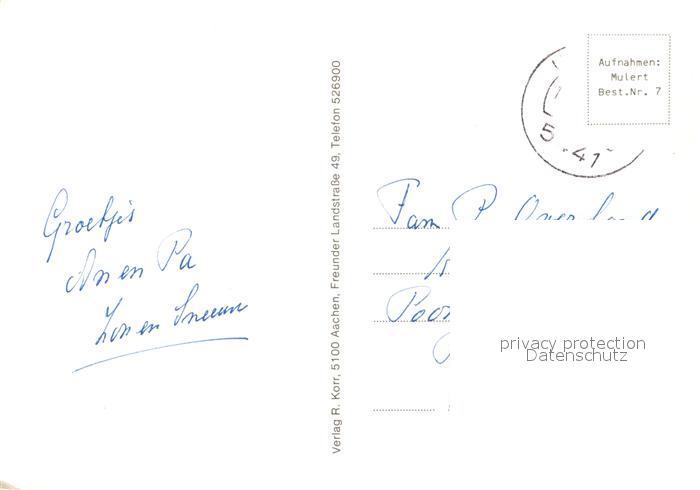 Groetjes
An en Pa
Zon en Sneeuw
Verlag R. Korr, 5100 Aachen, Freunder Landstraße 49, Telefon 526900
Aufnahmen:
Mulert
Best.Nr. 7
5 .41
Fam P
privacy protection
Datenschutz